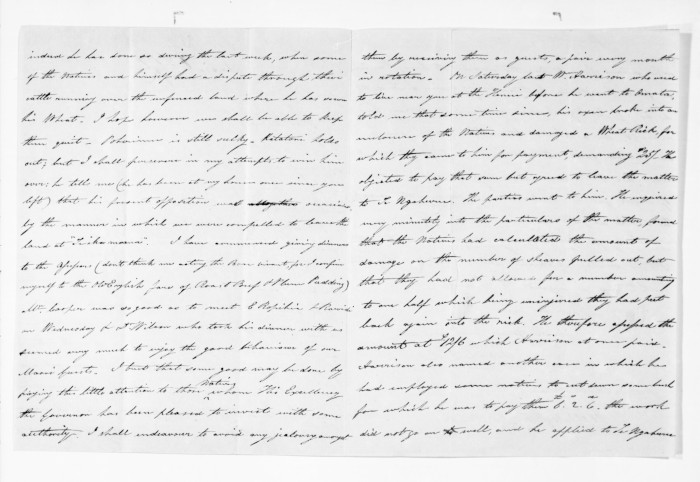 indeed he has done so during the last week, when some
of the Natives and himself had a dispute through their
cattle running over the unfenced land where he has sown
his Wheat. I hope however we shall be able to keep
them quiet. is still sulky. Katatore holds
out; but I shall persevere in my attempts to win him
over: he tells me (he has been at my house once since you
left) that his present opposition was occasioned
by the manner in which we were compelled to leave the
land at I have commenced giving dinners
to the Assessors (don't think me acting the here, for I confine
myself to the Old English fare of Roast Beef & Plum Pudding)
Mr. Cooper was so good as to meet E Ropiha &
on Wednesday & Wilson who took his dinner with us
seemed very much to enjoy the good behaviour of our
Maori guests. I trust that some good may be done by
paying this little attention to those Natives whom His Excellency
the Governor has been pleased to invest with some
authority. I shall endeavour to avoid any jealousy amongst
them by receiving them as guests, a pair every month
in rotation. On Saturday last Mr. Harrison who used
to live near you at the before he went to
told me that some time since, his oxen broke into an
enclosure of the Natives and damaged a Wheat Rick for
which they came to him for payment, demanding 25/. He
objected to pay that sum but agreed to leave the matter
to Te Ngahuru. The parties went to him. He inquired
very minutely into the particulars of the matter, found
that the Natives had calculated the amount of
damage on the number of sheaves pulled out, but
that they had not allowed for a number amounting
to one half which being uninjured they had put
back again into the rick. He therefore assessed the
amount at 12/6 which Harrison at once paid.
Harrison also named another case in which he
had employed some natives to cut down some bush
for which he was to pay them £. 2. The work
did not go on well, and he applied to Te Ngahuru